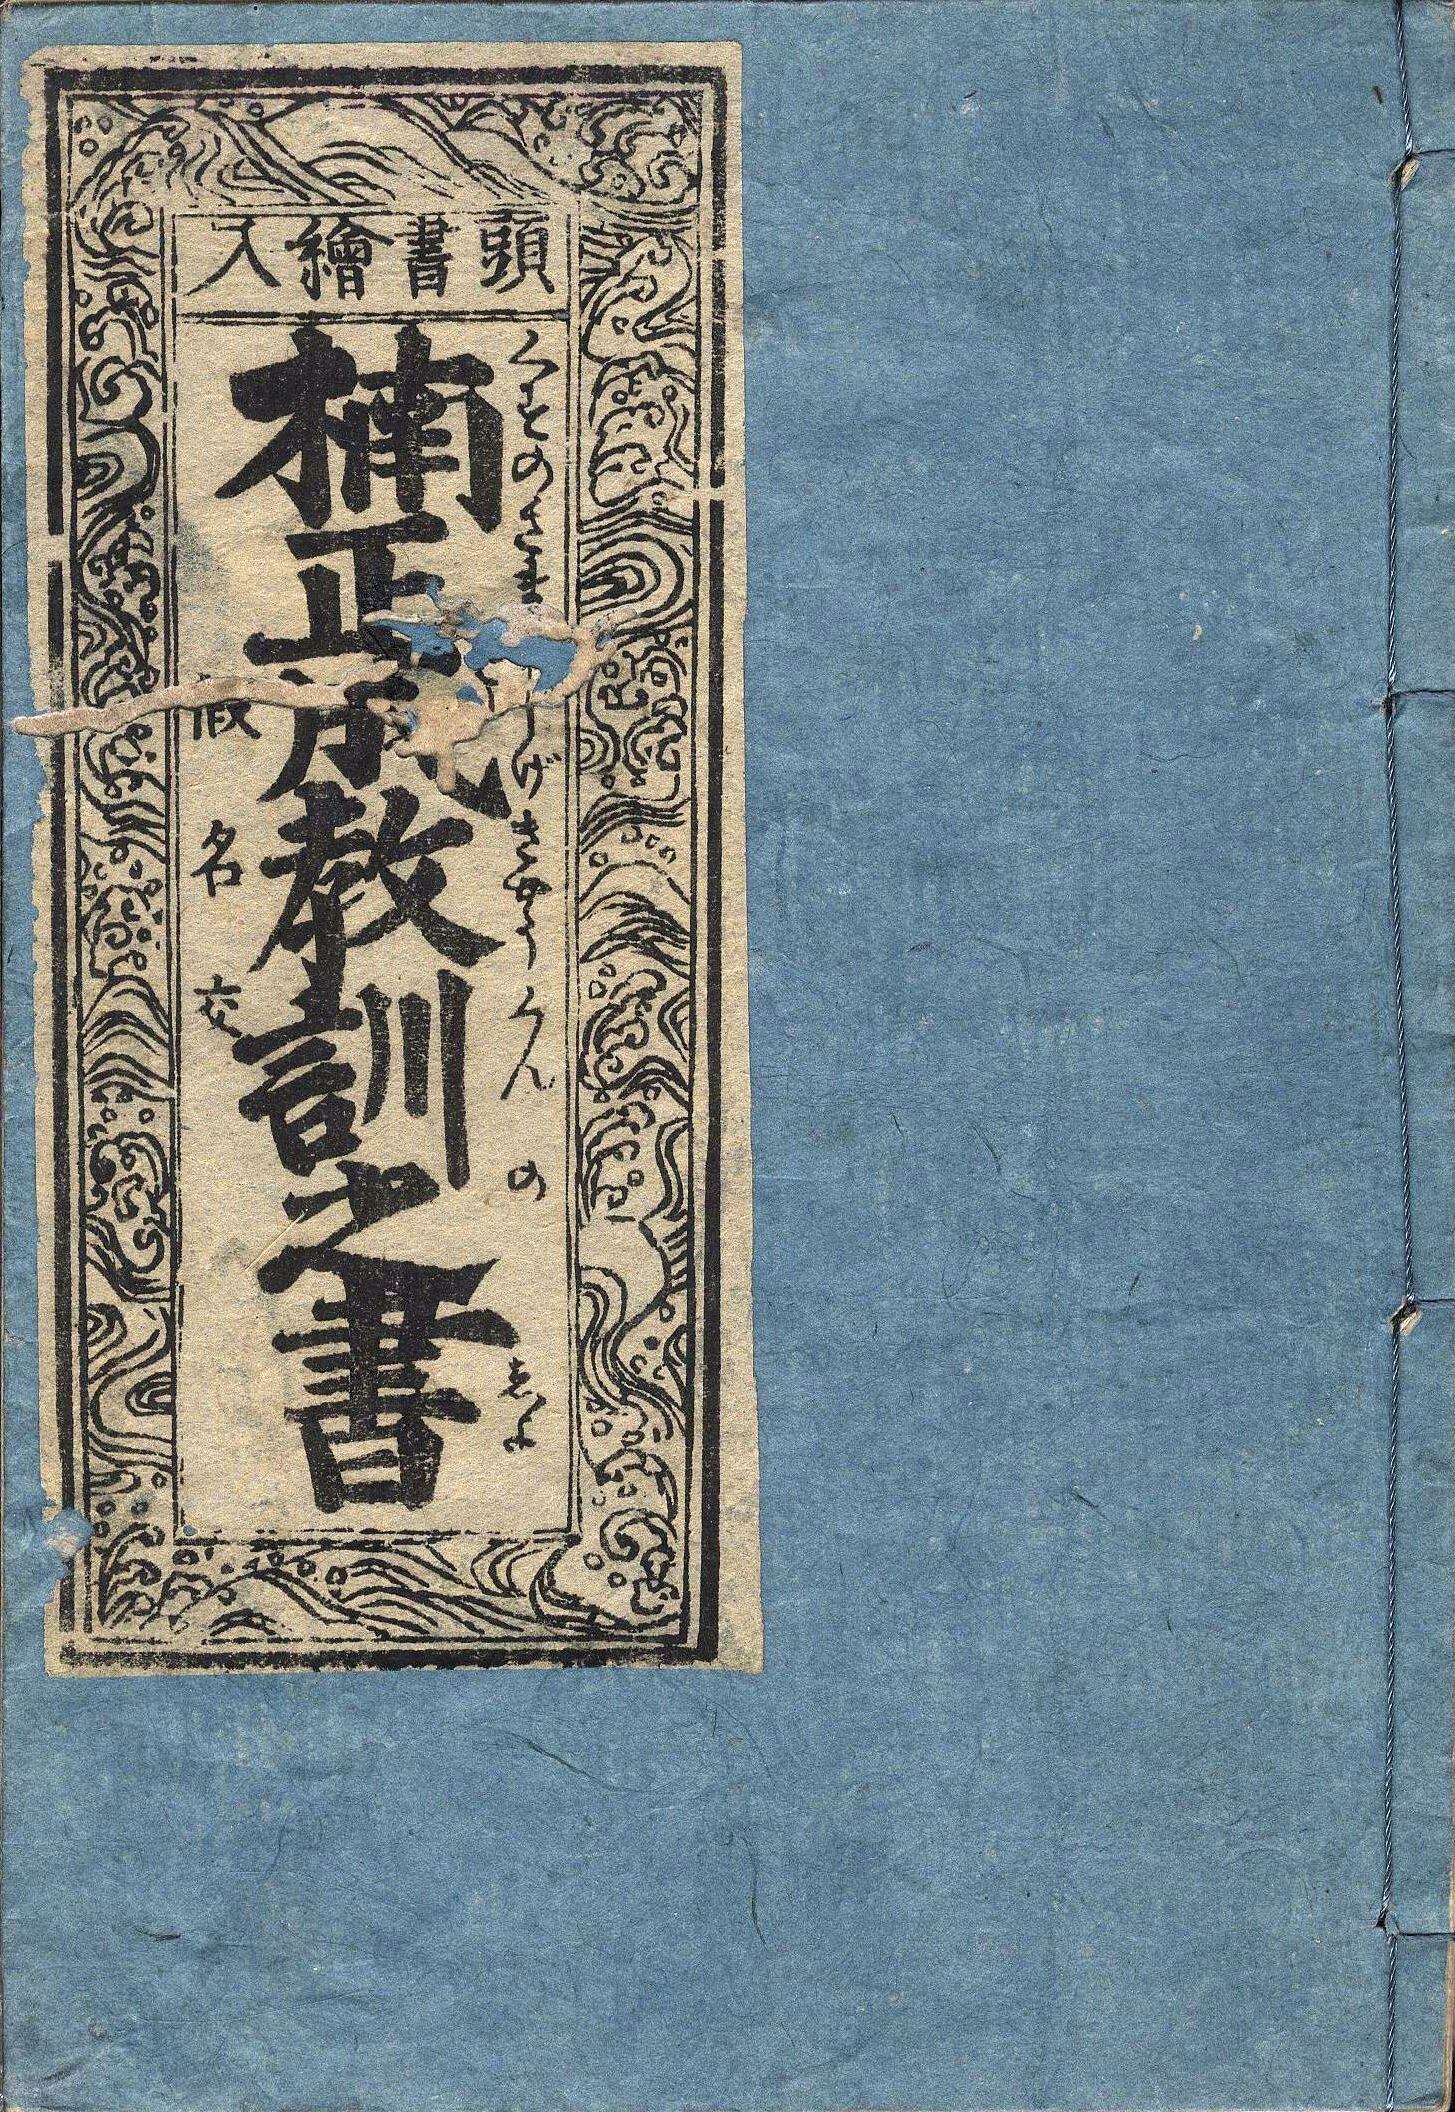 頭書繪入
くすのきまさしげきやうくんのしよ
楠正成教訓之書
假名交